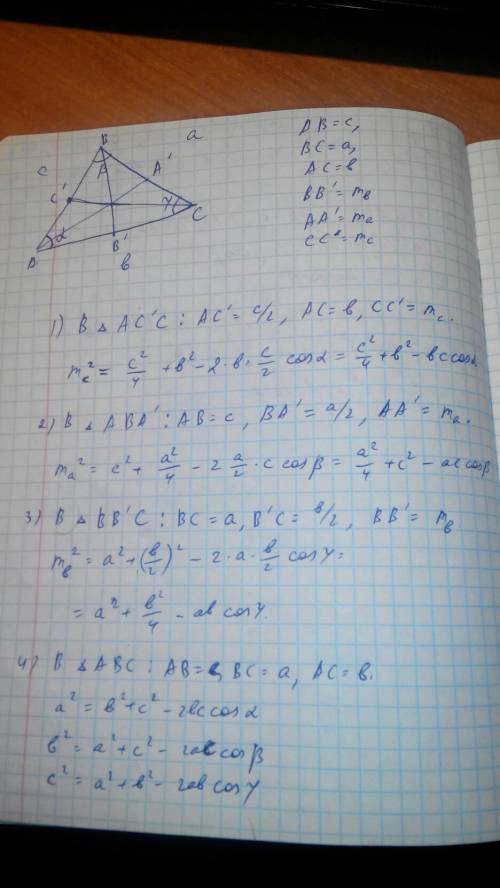 B
a
AB=c,
BC=a,
AC=в
BB'=mв
AA'=ma
CC'=mc
c
A'
β
C'
γ
C
α
A
B'
в
1) В △ AC'C : AC'= c/2, AC=в, CC'=mc.
mc² = c²/4 + в² - 2·в·c/2 cosα = c²/4 + в² - вc cosα
2) В △ ABA' : AB=c, BA'=a/2, AA'=ma.
ma² = c² + a²/4 - 2 a/2 · c cosβ = a²/4 + c² - ac cosβ
3) В △ BB'C : BC=a, B'C=в/2, BB'=mв
mв² = a² + (в/2)² - 2·a·в/2 cosγ =
= a² + в²/4 - aв cosγ.
4) В △ ABC : AB=c, BC=a, AC=в.
a² = в²+c² - 2вc cosα
в² = a²+c² - 2ac cosβ
c² = a²+в² - 2aв cosγ